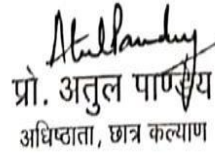 Atul Pandey
प्रो. अतुल पाण्डेय
अधिष्ठाता, छात्र कल्याण